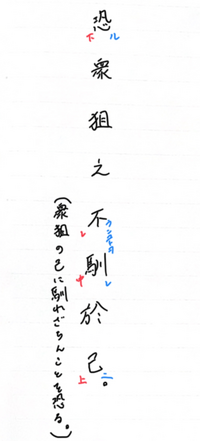 恐ル下衆狙之不ランコトヲレ馴レ中於己ニ上。
(衆狙の己に馴れざらんことを恐る。)